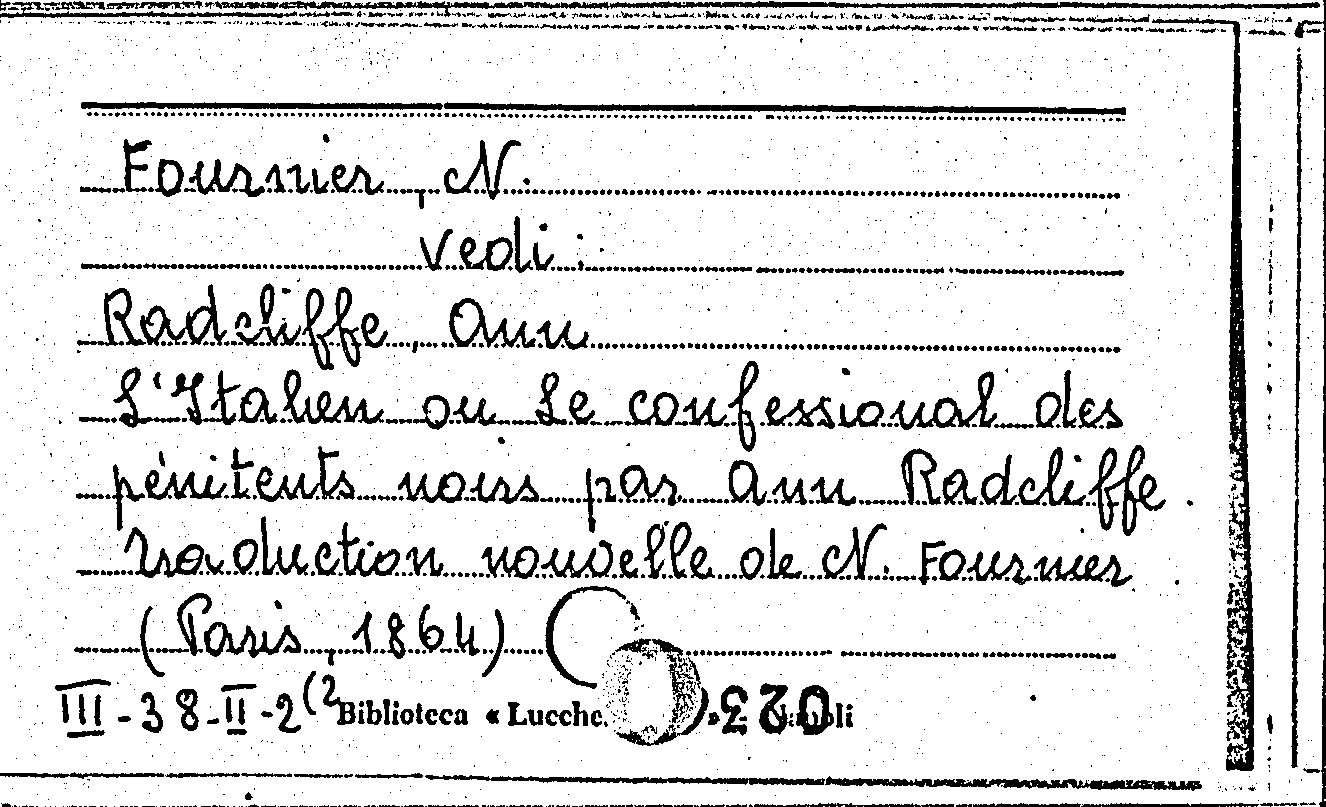 Fournier, N.
vedi:
Radcliffe, Ann
L'Italien ou Le confessional des
pénitents noirs par Ann Radcliffe.
Traduction nouvelle de N. Fournier
(Paris, 1864)
III-38-II-2(2 Biblioteca « Lucche